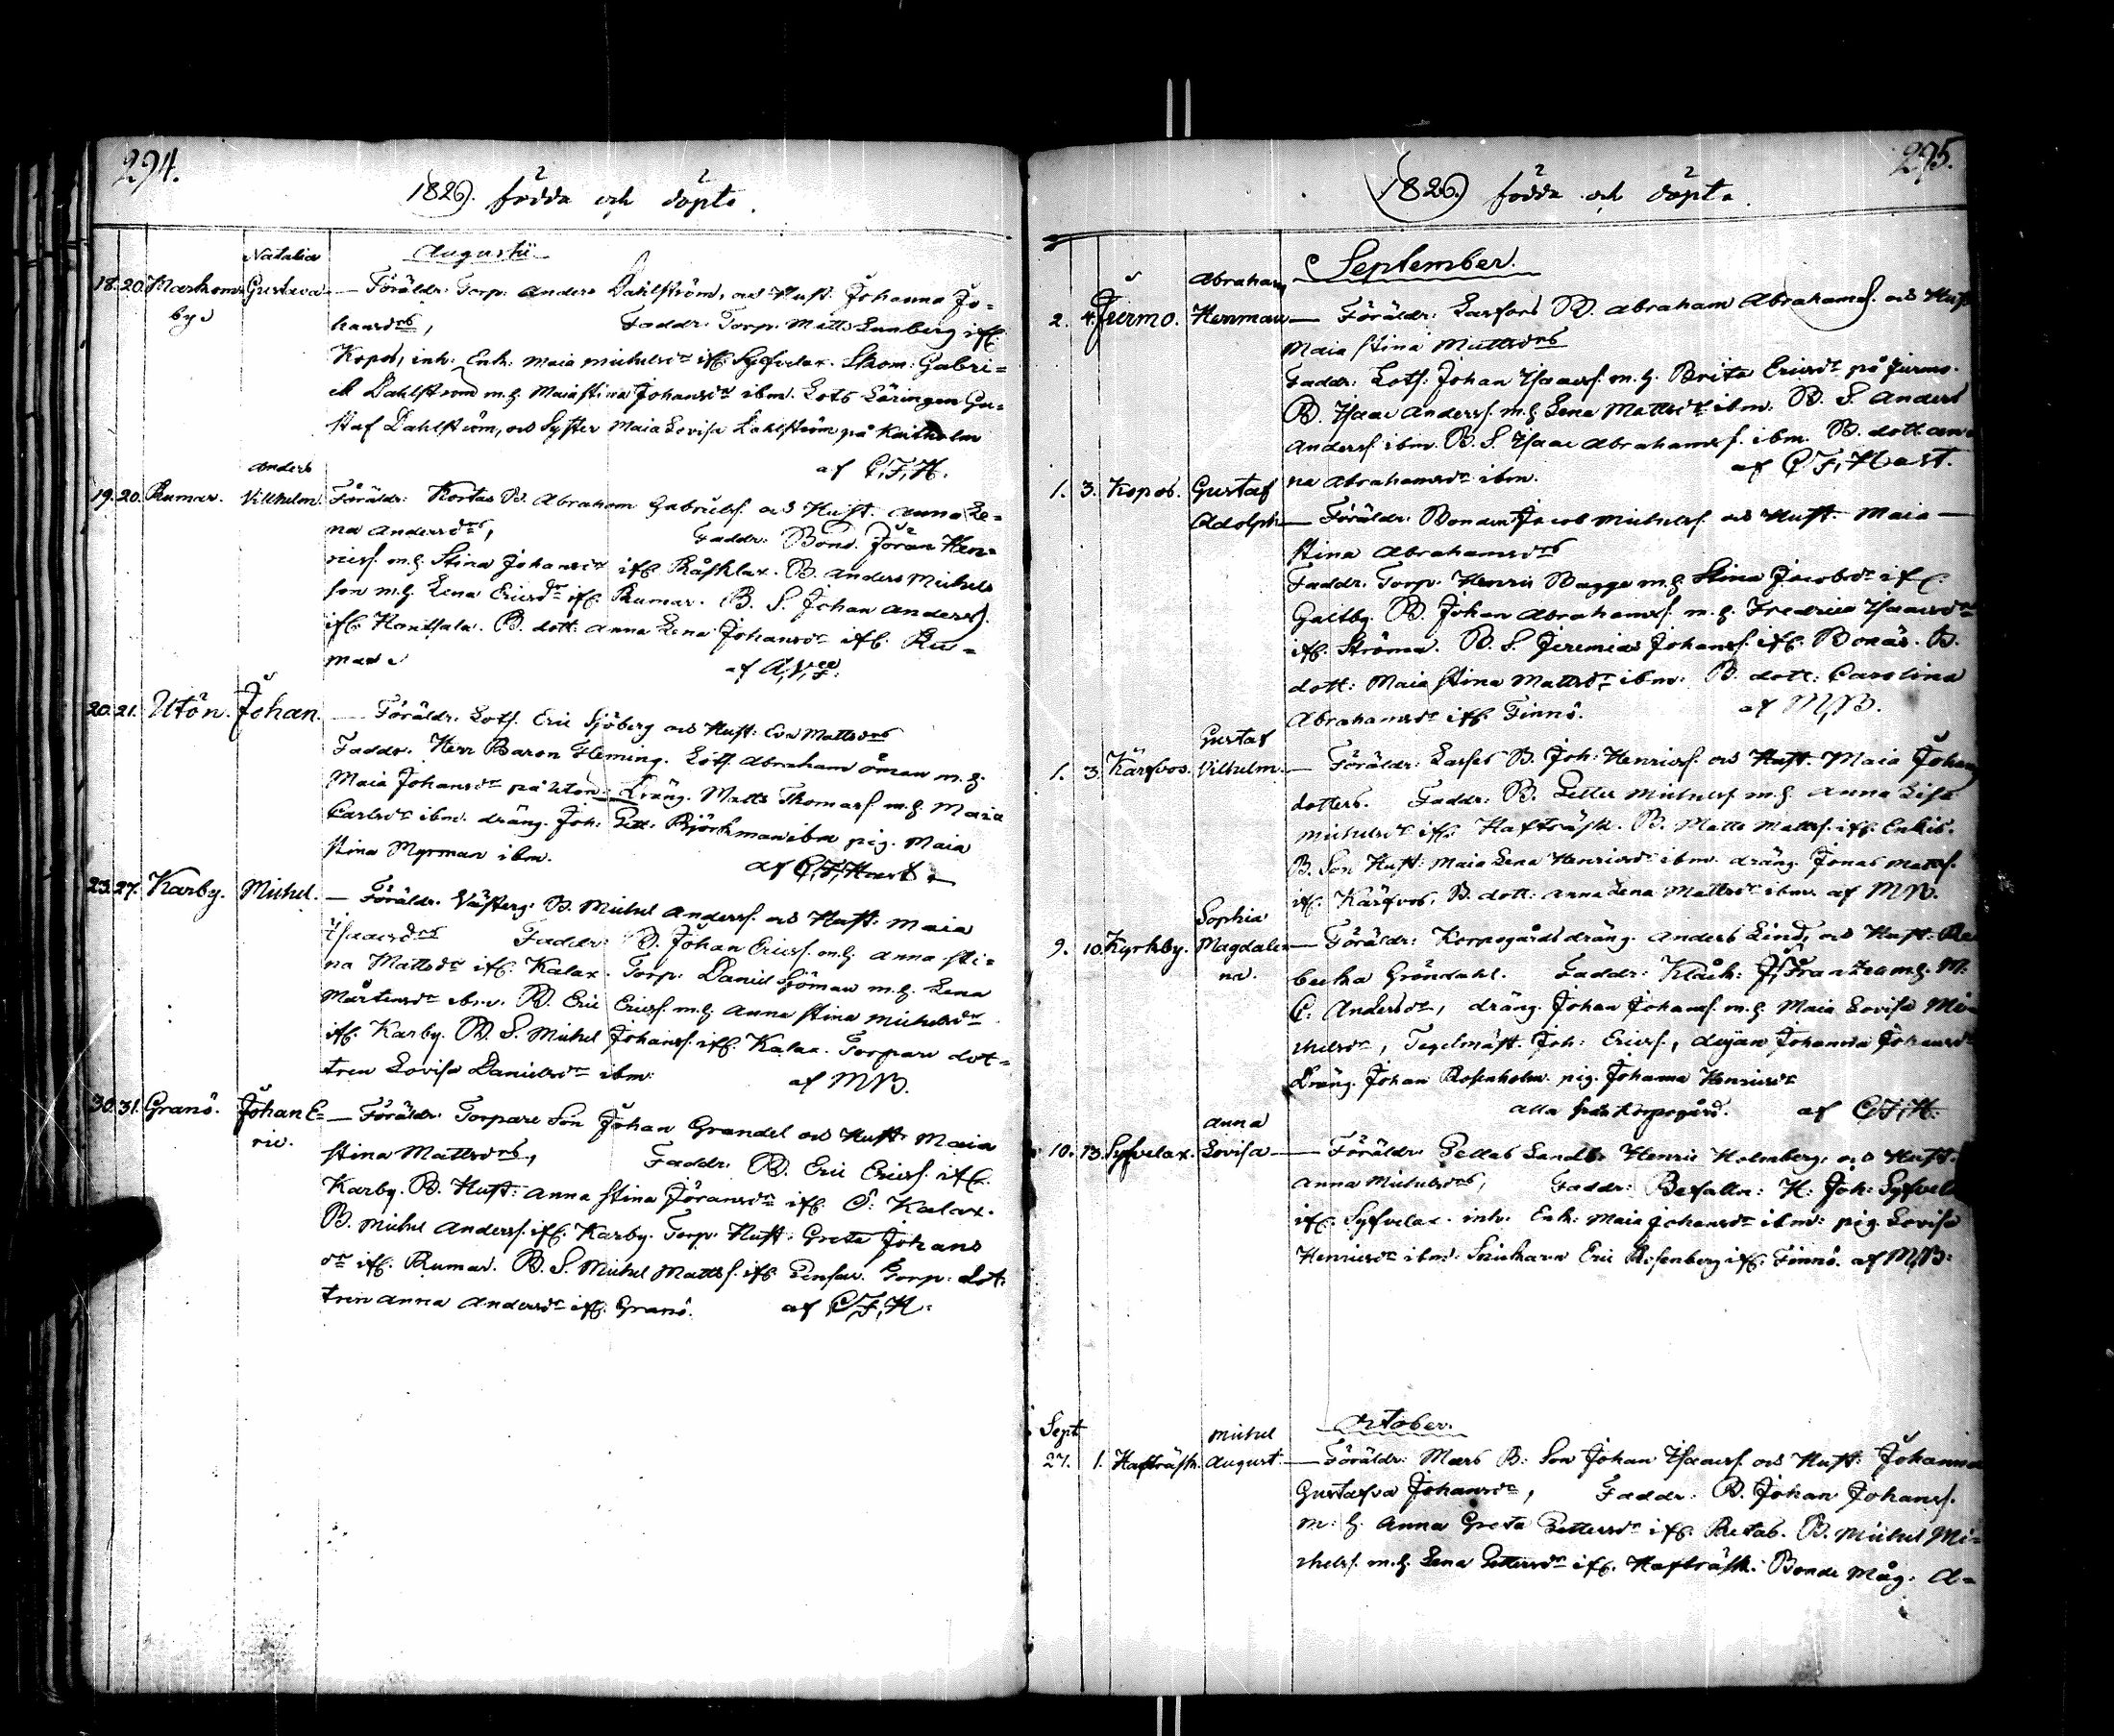 294.
1826. födda och döpte.
Augusti
Natalia
18. 20. Markomby Gustava — Föräldr: Torp. Anders Dahlström, och Hust. Johanna Jo=
hansdrs, Faddr: Torp. Matts Lunberg ifr.
Kopos, inh: Enk: Maia Michelsdr ifr. Syfvelax. Skom: Gabri=
el Dahlström m.h. Maia Stina Johansdr ibm. Lots Läringen Gu=
staf Dahlström, och Syster Maia Lovisa Dahlström på Kaitholm
af C.F.H.
Anders
19. 20. Rumar. Vilhelm. Föräldr: Kortas B. Abraham Gabrielss. och Hust. Anna Le=
na Andersdrs, Faddr: Bond. Jöran Hen=
ricss. m.h. Stina Johansdr ifr. Råsklax. B. Anders Michels
son m.h. Lena Ericsdr ifr. Rumar. B. S. Johan Anderss.
ifr. B. dott: Anna Lena Johansdr ifr. Ru=
mar.
20. 21. Utön. Johan. — Föräldr. Lots. Eric Sjöberg och Hust: Eva Mattsdrs
Faddr. Herr Baron Fleming. Lots. Abraham Öman m.h.
Maia Johansdr på Utön. Dräng. Matts Thomass. m.h. Maia
Carlsdr ibm. dräng. Joh: Pett: Björkman ibm pig. Maia
Stina Myrman ibm. af C.F. Hast
23. 27. Karby. Michel. — Föräldr. Västerg. B. Michel Anderss. och Hust: Maia
Isaacsdrs Faddr: B. Johan Ericss. m.h. Anna Sti=
na Mattsdr ifr. Kalax. Torp. Daniel Sjöman m.h. Lena
Mårtensdr ibm. B. Eric Ericss. m.h. Anna Stina Michelsdr
ifr. Karby. B. S. Michel Johanss. ifr. Kalax. Torpare dot=
tren Lovisa Danielsdr ibm. af MB.
30. 31. Granö. Johan E= — Föräldr: Torpare Son Johan Grandel och Hust: Maia
ric.
Stina Mattsdrs, Faddr. B. Eric Ericss. ifr.
Karby. B. Hust: Anna Stina Jöransdr ifr. Ö: Kalax.
B. Michel Anderss. ifr. Karby. Torp. Hust: Greta Johans
dr ifr. Rumar. B. S. Michel Mattss. ifr. Pensar. Torp. dot
tren Anna Andersdr ifr. Granö. af C.F.H.
295.
1826. födda och döpte.
September.
Abraham
2. 4. Jurmo. Herrman — Föräldr: B. Abraham Abrahamss. och Hust
Maia Stina Mattsdrs
Faddr: Lots: Johan Isaacss. m.h. Brita Ericsdr på Jurmo.
B. Isaac Anderss. m.h. Lena Mattsdr ibm. B. S. Anders
Anderss. ibm. B. S. Isaac Abrahamss. ibm. B. dott. An
na Abrahamsdr ibm. af C.F. Hast.
1. 3. Kopos. Gustaf
Adolph — Föräldr. Bonden Jacob Michelss. och Hust. Maia —
Stina Abrahamsdrs
Faddr. Torp. Henric Bagge m.h. Stina Jacobsdr ifr.
Galtby. B. Johan Abrahamss. m.h. Fredrica Isaacsdr
ifr. Ströma. B. S. Jeremias Johanss. ifr. Bonäs. B.
dott: Maia Stina Mattsdr ibm. B. dott: Carolina
Abrahamsdr ifr. Finnö. af M.B.
Gustaf
1. 3. Kärfvos. Vilhelm. — Föräldr: Lasses B. Joh: Henricss. och Hust. Maia Johans
dotters. Faddr: B. Petter Michelss. m.h. Anna Lisa
Michelsdr ifr. Hafträsk. B. Matts Mattss. ifr. Enkis.
B. Son Hust: Maia Lena Henricsdr ibm. dräng. Jonas Mattss.
ifr. Kärfvos, B. dott: Anna Lena Mattsdr ibm. af MB.
Sophia
9. 10. Kyrkby. Magdale= — Föräldr: Korpogårds dräng. Anders Lind, och Hust: Re
na.
becka Gröndahl. Faddr: Klåck: J. Frantzea m.h. M:
C. Andersdr, dräng. Johan Johanss. m.h. Maia Lovisa Mi=
chelsdr, Tegelmäst. Joh: Ericss., dejan Johanna Johansdr
Dräng. Johan Rosenholm. pig. Johanna Henricsdr
alla från Korpogård. af C.F.H.
Anna
10. 13. Syfvelax. Lovisa — Föräldr: Pellas Landb: Henric Holmberg, och Hust:
Anna Michelsdrs, Faddr: Befalln: H. Joh: Syfvel
ifr. Syfvelax. inh: Enk: Maia Johansdr ibm: pig. Lovisa
Henricsdr ibm: Snickaren Eric Rosenberg ifr. Finnö. af MB:
October.
Sept Michel
27. 1. Hafträsk. August. — Föräldr: Mars B: Son Johan Isaacss. och Hust: Johanna
Gustafva Johansdr, Faddr: B. Johan Johanss.
m: h. Anna Greta Pettersdr ifr. Retas. B. Michel Mi=
chelss. m.h. Lena Pettersdr ifr. Hafträsk. Bonde Måg. A=